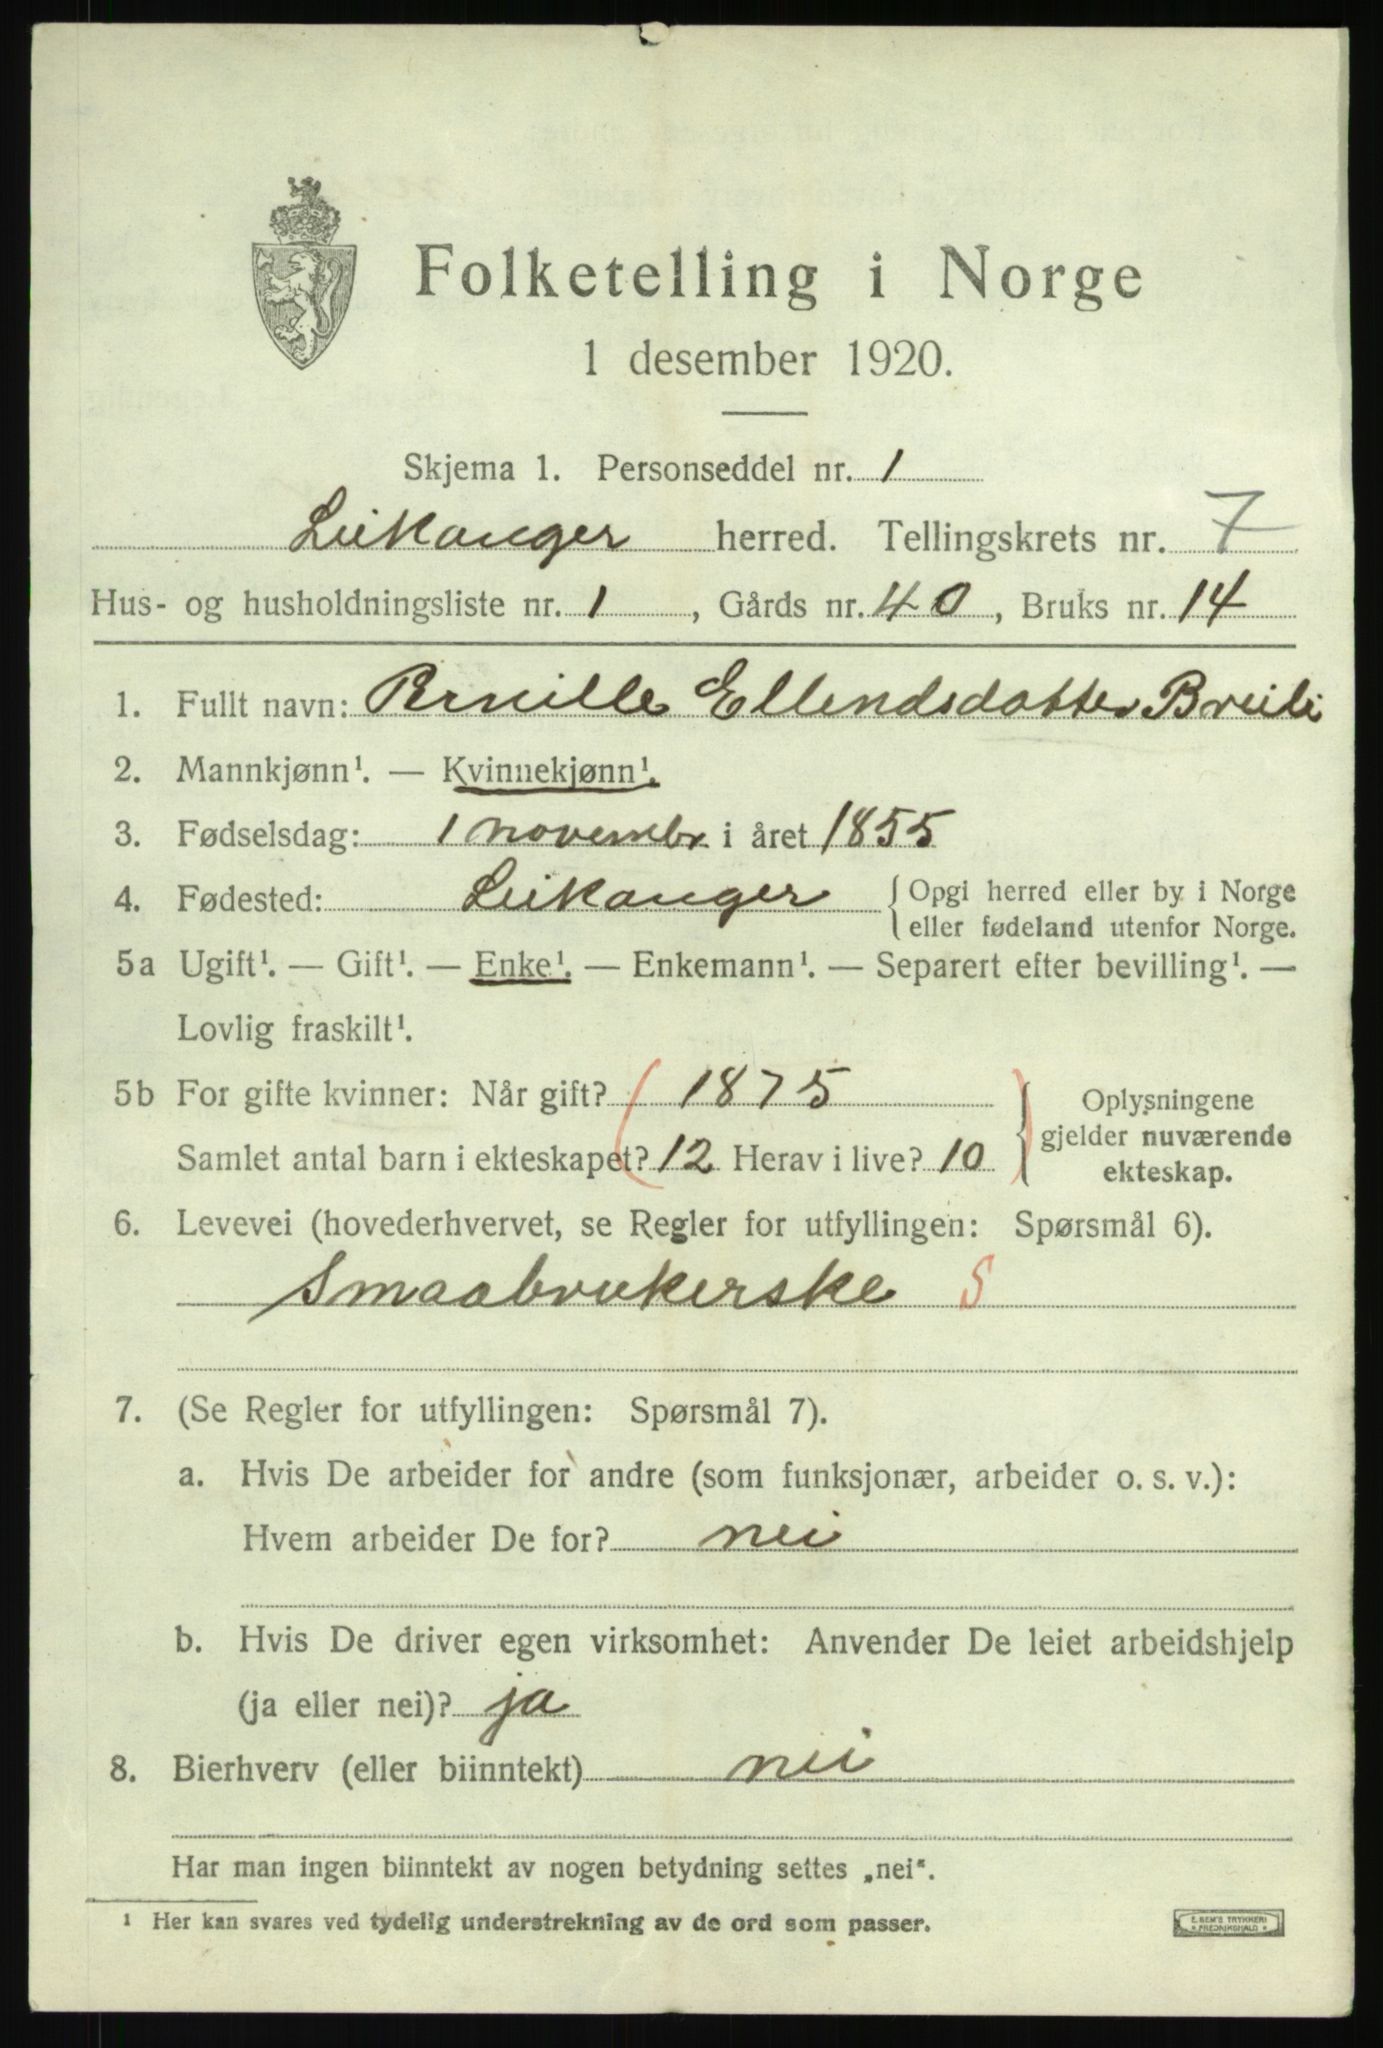 Folketelling i Norge
1 desember 1920.
Skjema 1. Personseddel nr. 1
Leikanger herred. Tellingskrets nr. 7
Hus- og husholdningsliste nr. 1, Gårds nr. 40, Bruks nr. 14
1. Fullt navn: Ellendsdatter Breili
2. Mannkjønn¹. — Kvinnekjønn¹.
3. Fødselsdag: 1 novembr i året 1855
4. Fødested: Leikanger { Opgi herred eller by i Norge
eller fødeland utenfor Norge.
5a Ugift¹. — Gift¹. — Enke¹. — Enkemann¹. — Separert efter bevilling¹. —
Lovlig fraskilt¹.
5b For gifte kvinner: Når gift? (1875) { Oplysningene
Samlet antal barn i ekteskapet? 12 Herav i live? 10 gjelder nuværende
ekteskap.
6. Levevei (hovederhvervet, se Regler for utfyllingen: Spørsmål 6).
Smaabrukerske S
7. (Se Regler for utfyllingen: Spørsmål 7).
a. Hvis De arbeider for andre (som funksjonær, arbeider o. s. v.):
Hvem arbeider De for? nei
b. Hvis De driver egen virksomhet: Anvender De leiet arbeidshjelp
(ja eller nei)? ja
8. Bierhverv (eller biinntekt) nei
Har man ingen biinntekt av nogen betydning settes „nei“.
¹ Her kan svares ved tydelig understrekning av de ord som passer.
E. SEM'S TRYKKERI
FREDRIKSHALD